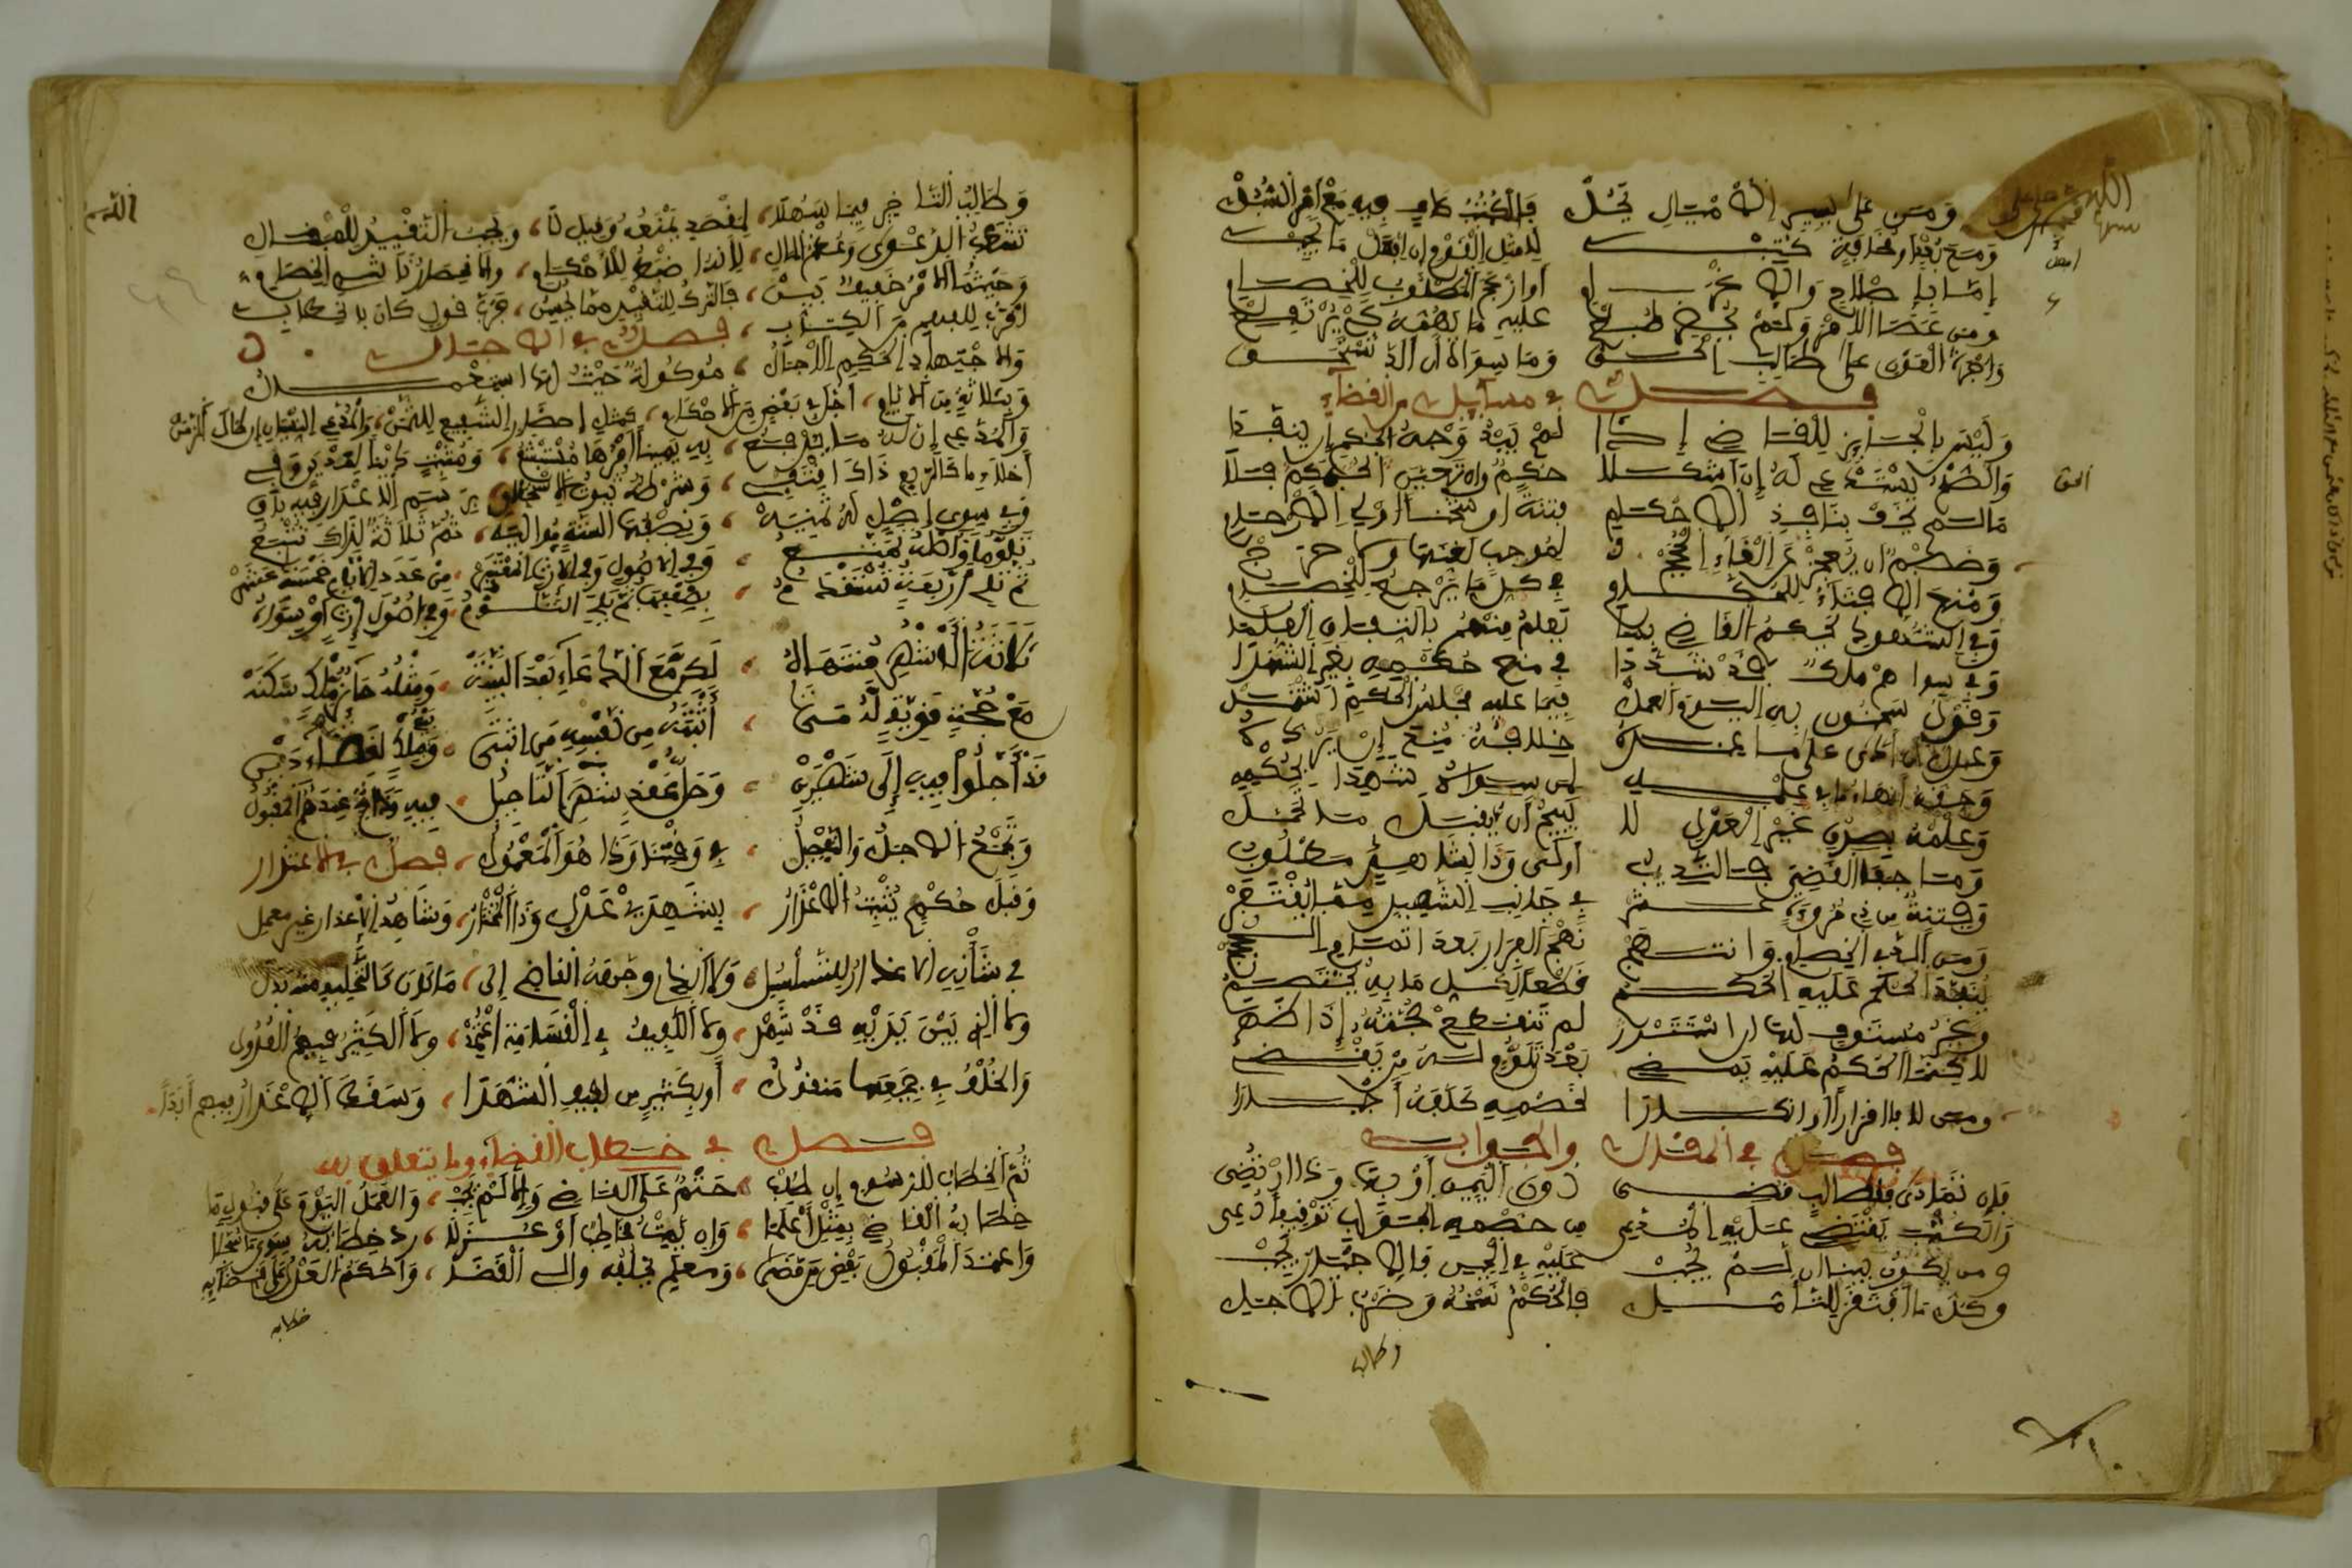 ومن على يسير الأميال يحل فالكتب كاف فيه مع أمن السبل
ومع بعد أو مخافة كتب لأمثل القوم أن افعل ما يجب
إما بإصلاح والإغرام أو أزعج المطلوب للخصام
ومن عصى الأمر ولم يحضر طبع عليه ما يهمه كي يرتفع
وأجرة العون على طالب الحق ومن سواه إن ألد تستحق
فصل في مسائل من القضاء
وليس بالجائز للقاضي إذا لم يبد وجه الحكم أن ينفذا
والصلح يستدعي له إن أشكلا حكم وإن تعين الحكم فلا
ما لم يخف بنافذ الأحكام فتنة أو شحنا أولي الأرحام
وخصم ان يعجز عن القاء الحجج لموجب لقنها ولا حرج
ومنع الإفتاء للحكام في كل ما يرجع للخصام
وفي الشهود يحكم القاضي بما يعلم منهم باتفاق العلما
وفي سواهم مالك قد شددا في منع حكمه بغير الشهدا
وقول سحنون به اليوم العمل فيما عليه مجلس الحكم اشتمل
وعدل ان أدى على ما عنده خلافه منع ان يرده
وحقه إنهاء ما في علمه لمن سواه شاهدا بحكمه
وعلمه بصدق غير العدل لا يبيح أن يقبل ما تحملا
ومن جفا القاضي فالتأديب أولى وذا لشاهد مطلوب
وفلتة من ذي مروءة عثر في جانب الشاهد مما يغتفر
ومن ألد في الخصام وانتهج نهج الفرار بعد اتمام الحجج
ينفذ الحكم عليه الحكم قطعا لكل ما به يختصم
وغير مستوف لها ان استتر لم تنقطع حجته إذا ظهر
لكنما الحكم عليه يمضي بعد تلوم له من يقضي
ومن الد بالقرار أو إنكار لخصمه كلفه إجبارا
فصل في المقال والجواب
فإن تمادى فلطالب قضى دون اليمين أو بها وذا ارتضي
والكتب يقتضي عليه المدعي من خصمه الجواب توقيفا دعي
وما يكون بينا ان لم يجب عليه في الحين فالاجبار يجب
وكل ما افتقر للتأمل فالحكم نسخه وضرب الأجل
وطالب
وطالب التأخير فيما سهلا لمقصد يمنعه وقيل لا ويجب التقييد للمقال
تشعب الدعوى وعظم المال لأنه أضبط للأحكام ولانحصار ناشئ الخصام
وحيثما الأمر خفيف بين فالترك للتقييد مما يحسن فرب قول كان بالخطاب
أقرب للفهم من الكتاب فصل في الآجال
ولاجتهاد الحاكم الآجال موكولة حيث لها استعمال
وبثلاثة من الأيام أجل في بعض من الأحكام كمثل إحضار الشفيع للثمن والمدعي النسيان إن طال الزمن
والمدعي أن له ما يدفع به يمينا أمرها مستبشع ومثبت دينا لمديان وفي
إخلاء ما كالربع ذاك اقتفي وشرطه ثبوت الاستحقاق برسم الإعذار فيه باق
وفي سوى أصل له ثمانيه ونصفها لستة مواليه ثم ثلاثة لذاك تتبع
تلوما وأصله تمتع وفي أصول وفي الإرث المعتبر من عدد الأيام خمسة عشر
ثم تلي أربعة تستقدم بضعفها ثم يلي التلوم وفي أصول إرث أو سواه
ثلاثة الأشهر منتهاه لكن مع ادعاء بعد البينه ومثله حائز ملك سكنه
مع حجة قوية له متى أثبته من نفسه من أثبتا وبائع ملك لقضاء دين
قد أجلوا فيه إلى شهرين وحل عقد شهر التأجيل فيه وذا عندهم المقبول
وتجمع الآجال والتفصيل في وقتنا هذا هو المعمول فصل في الإعذار
وقبل حكم يثبت الإعذار بشاهدي عدل وذا المختار وشاهد الإعذار غير معمل
في شأنه الإعذار للتسلسل ولا الذي وجهه القاضي إلى ما كان كالتحليف منه بدلا
ولا الذي بين يديه قد شهد ولا اللفيف في القسامة اعتمد ولا الكثير فيهم العدول
والخلف في جميعها منقول أو بكثير من لفيف الشهدا وسقط الإعذار فيهم أبدا
فصل في خطاب القضاة وما يتعلق به
ثم الخطاب للرسوم إن طلب حتم على القاضي وإلا لم يجب والعمل اليوم على قبول ما
خاطبه القاضي بمثل أعلما وإن يمت مخاطب أو عزلا رد خطابه سوى ما سجلا
واعتمد القبول بعض من قضى ومعلم يخلفه والي القضا والحكم العدل على قضائه
خطابه